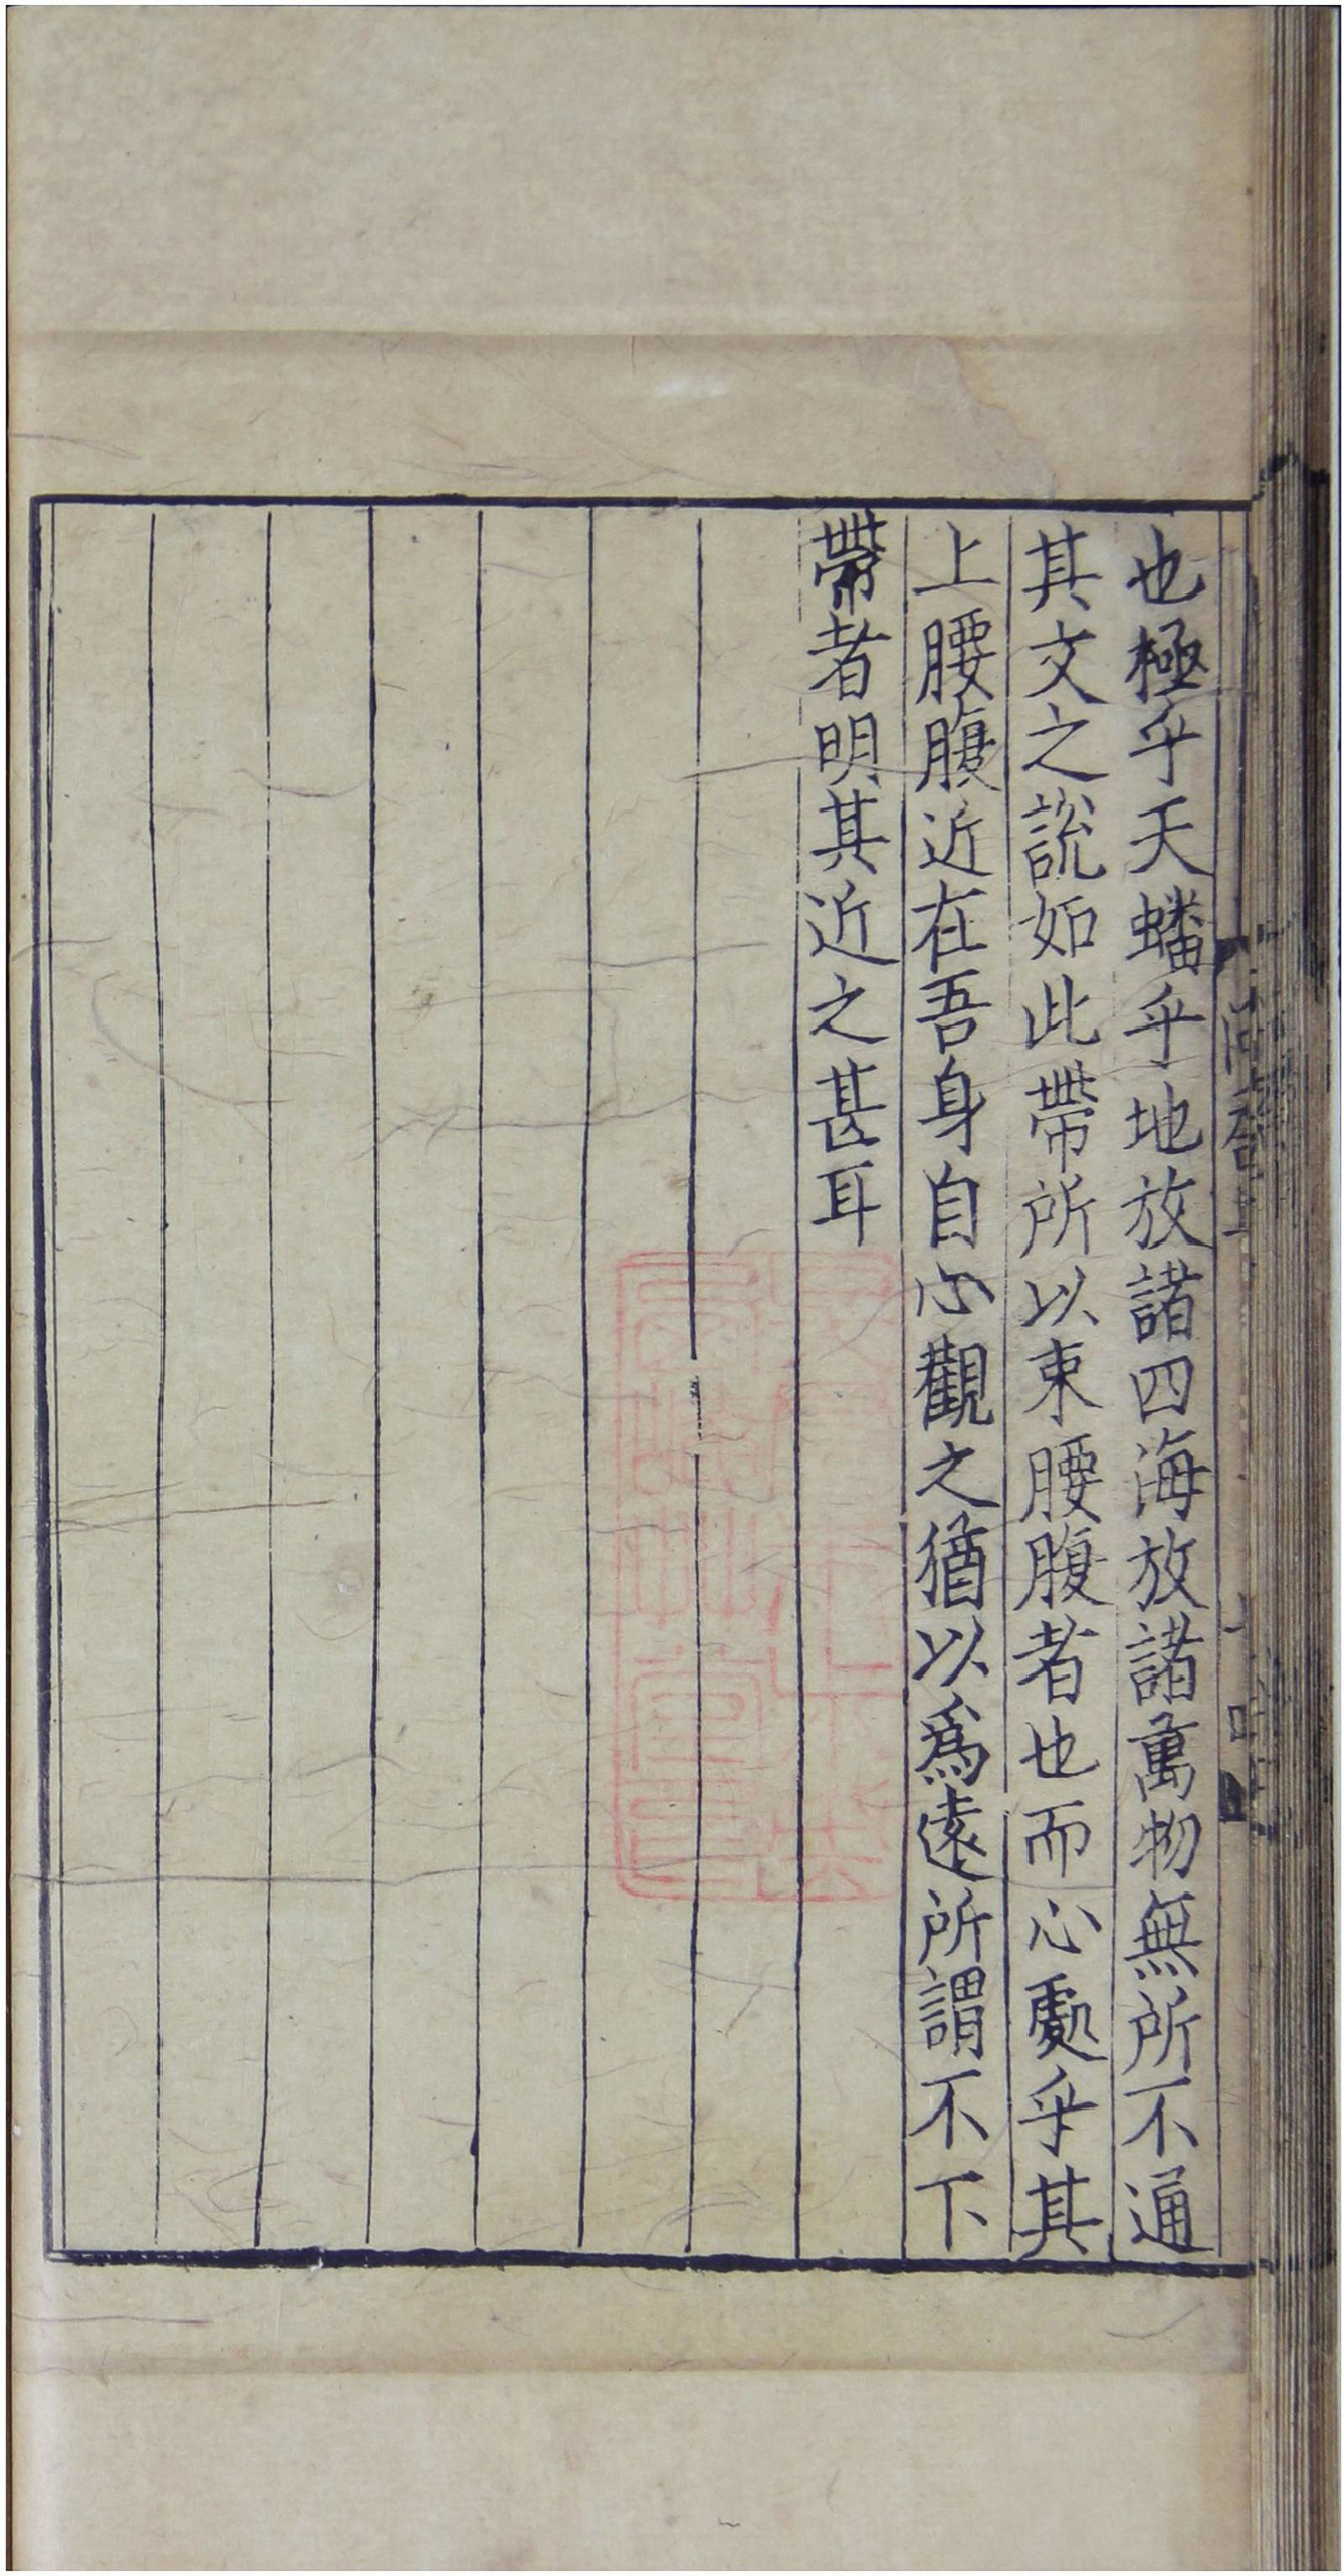 也極乎天蟠乎地放諸四海放諸萬物無所不通
其文之說如此帶所以束腰腹者也而心處乎其
上腰腹近在吾身自心觀之猶以爲遠所謂不下
帶者明其近之甚耳